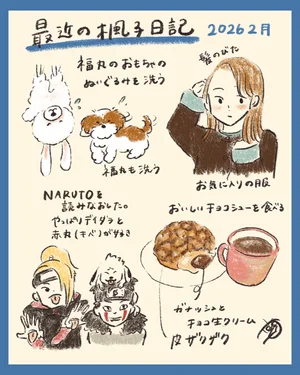 最近の楓子日記
2026 2月
福丸のおもちゃの
ぬいぐるみを洗う
福丸も洗う
髪のびた
お気に入りの服
NARUTOを
読みなおした。
やっぱりデイダラと
赤丸(キバ)が好き
おいしいチョコシューを食べる
ガナッシュと
チョコ生クリーム
皮ザクザク